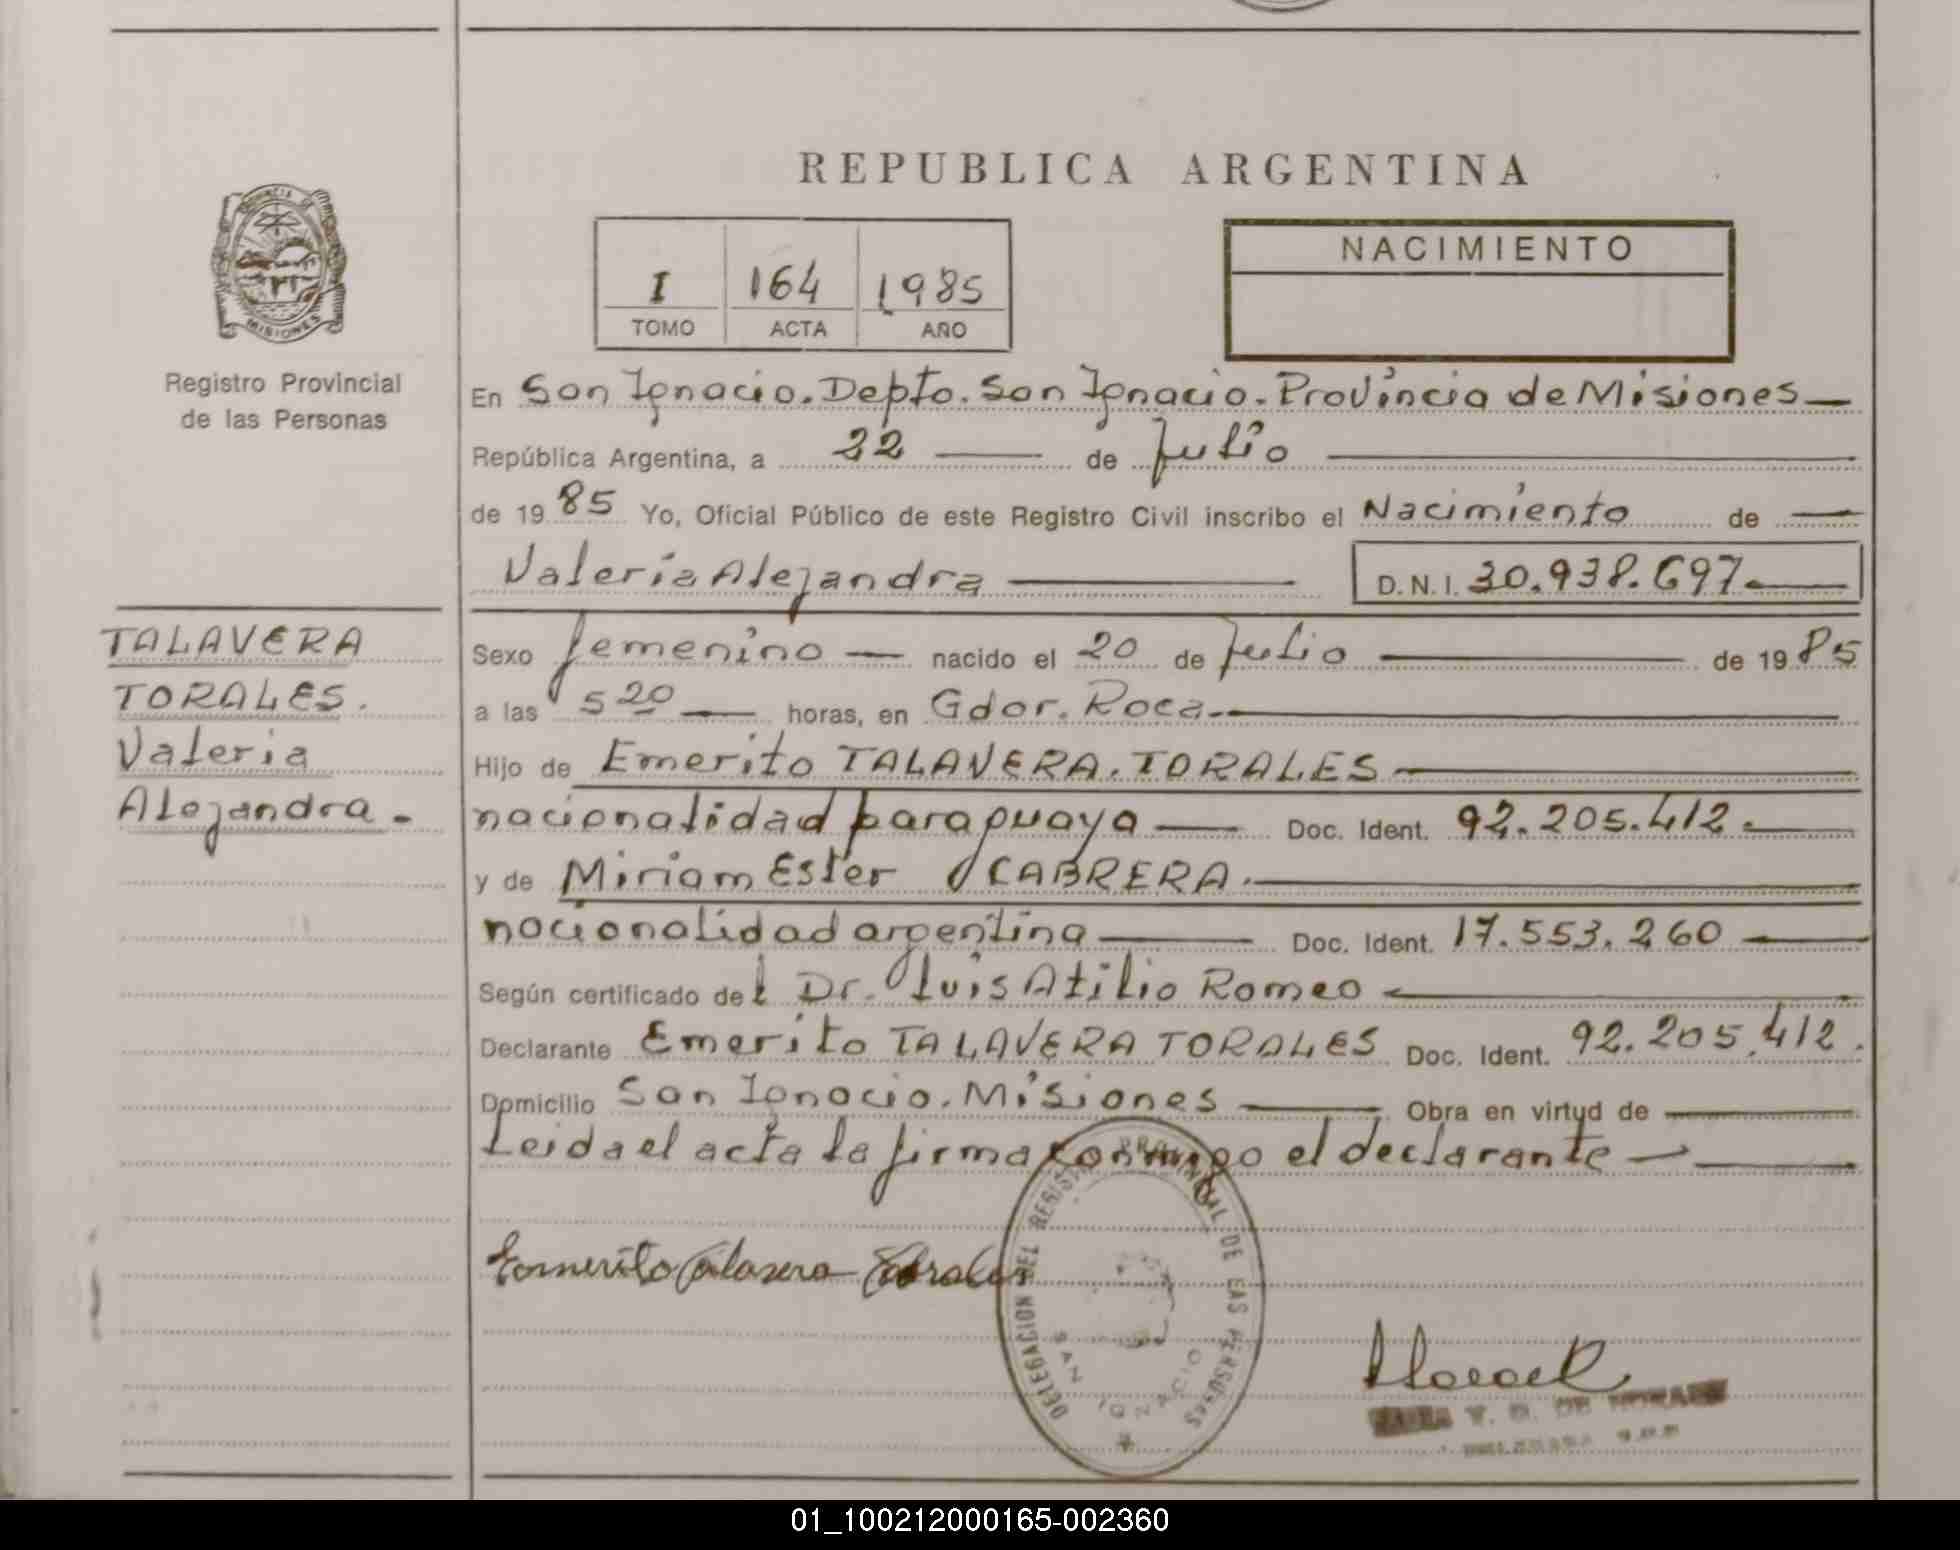 REPUBLICA ARGENTINA
PROVINCIA DE
MISIONES
Registro Provincial
de las Personas
I 164 1985
TOMO ACTA AÑO
NACIMIENTO
En San Ignacio. Depto. San Ignacio. Provincia de Misiones
República Argentina, a 22 de Julio
de 1985 Yo, Oficial Público de este Registro Civil inscribo el Nacimiento de
Valeria Alejandra D.N.I. 30.938.697
TALAVERA
TORALES.
Valeria
Alejandra
Sexo femenino nacido el 20 de Julio de 1985
a las 5 20 horas, en Gdor. Roca
Hijo de Emerito TALAVERA. TORALES
nacionalidad paraguaya Doc. Ident. 92.205.412.
y de Miriam Ester CABRERA.
nacionalidad argentina Doc. Ident. 17.553.260
Según certificado del Dr. Luis Atilio Romeo
Declarante Emerito TALAVERA TORALES Doc. Ident. 92.205.412.
Domicilio San Ignacio. Misiones Obra en virtud de
Leida el acta la firma conmigo el declarante
Emerito Talavera Torales
DELEGACION DEL REGISTRO PROVINCIAL DE LAS PERSONAS
SAN IGNACIO
V. DE
01_100212000165-002360